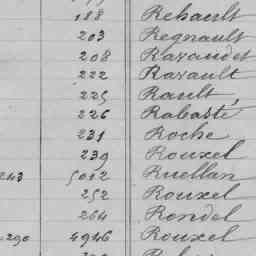 188 Rehault
203 Regnault
208 Ravaudet
222 Ravault
225 Rault
226 Rabasté
231 Roche
239 Rouxel
243 5012 Ruellan
252 Rouxel
264 Rondel
290 4946 Rouxel